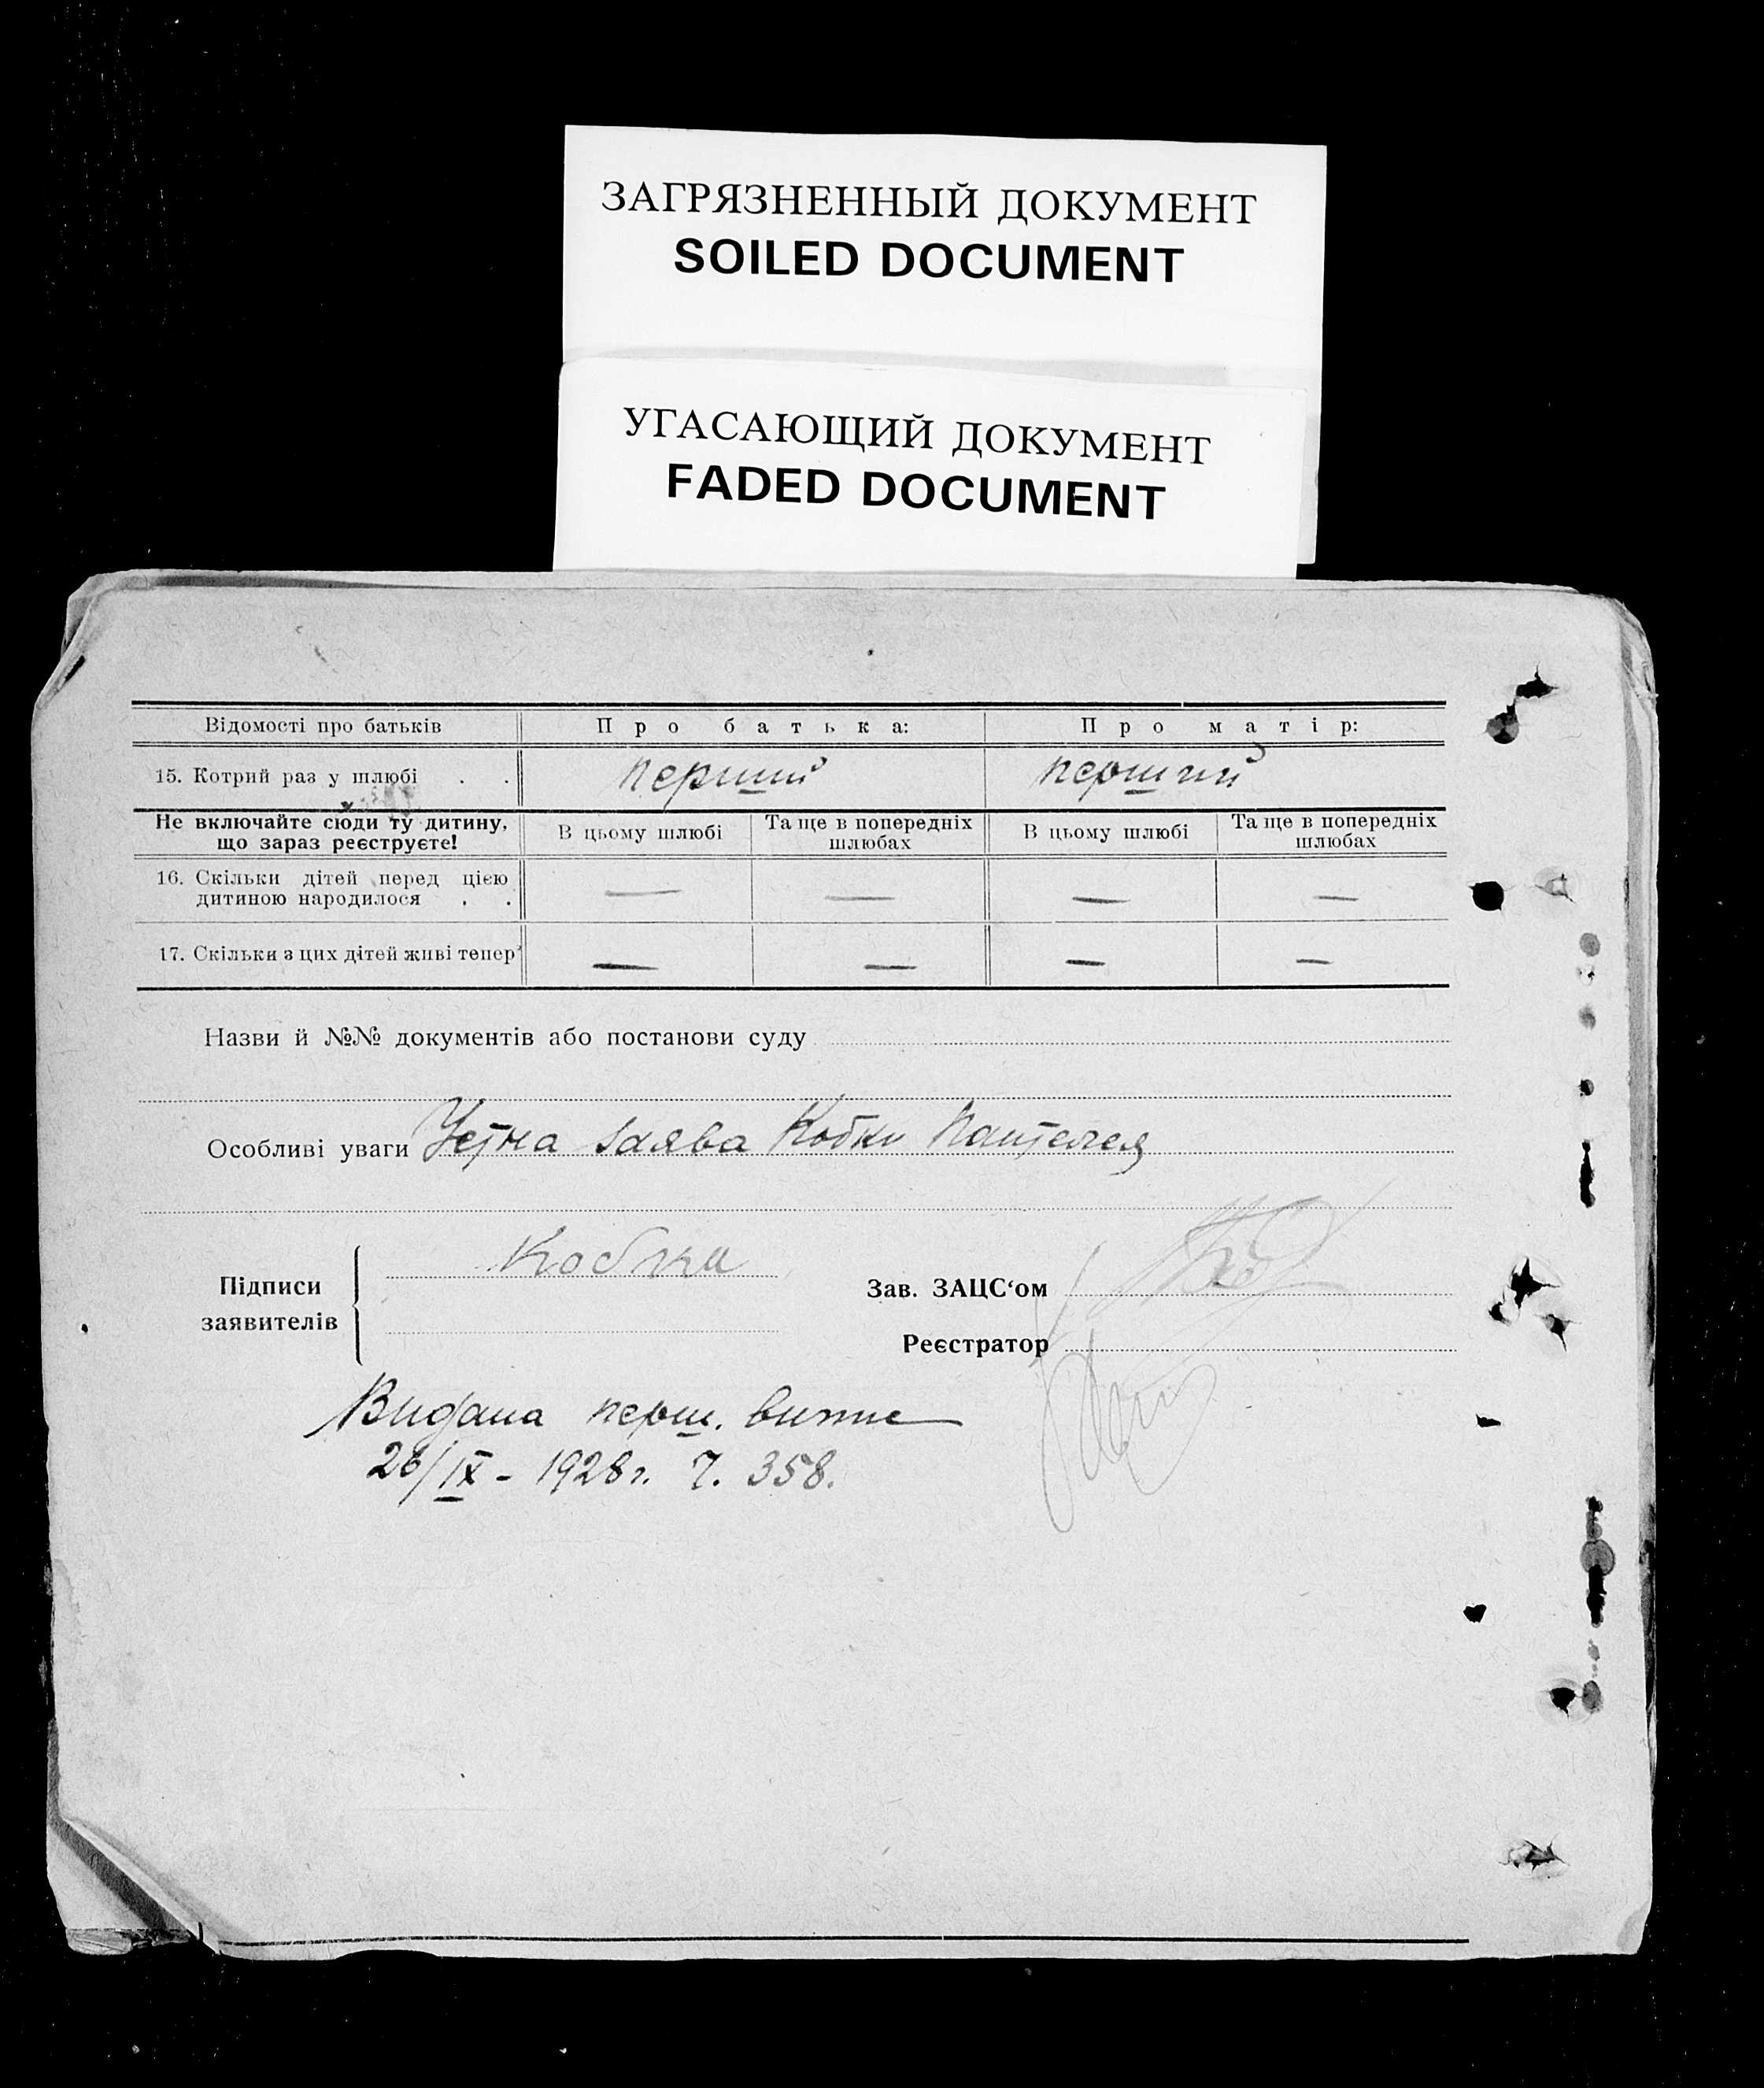 ЗАГРЯЗНЕННЫЙ ДОКУМЕНТ
SOILED DOCUMENT
УГАСАЮЩИЙ ДОКУМЕНТ
FADED DOCUMENT
Відомості про батьків Про батька: Про матір:
15. Котрий раз у шлюбі . . перший перший
Не включайте сюди ту дитину, що зараз реєструєте! В цьому шлюбі Та ще в попередніх шлюбах В цьому шлюбі Та ще в попередніх шлюбах
16. Скільки дітей перед цією — — — —
дитиною народилося . .
17. Скільки з цих дітей живі тепер — — — —
Назви й №№ документів або постанови суду
Особливі уваги Устна заява Кобки Пантелея
Підписи заявителів Кобка
Зав. ЗАЦС‘ом
Реєстратор
Видана перш. випис
26/IX - 1928 г. Ч. 358.